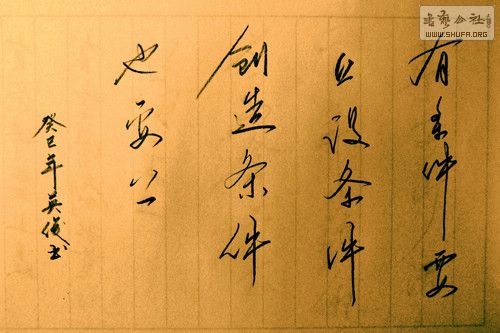 有条件要
上没条件
创造条件
也要上
癸巳年英俊书
书艺公社
WWW.SHUFA.ORG